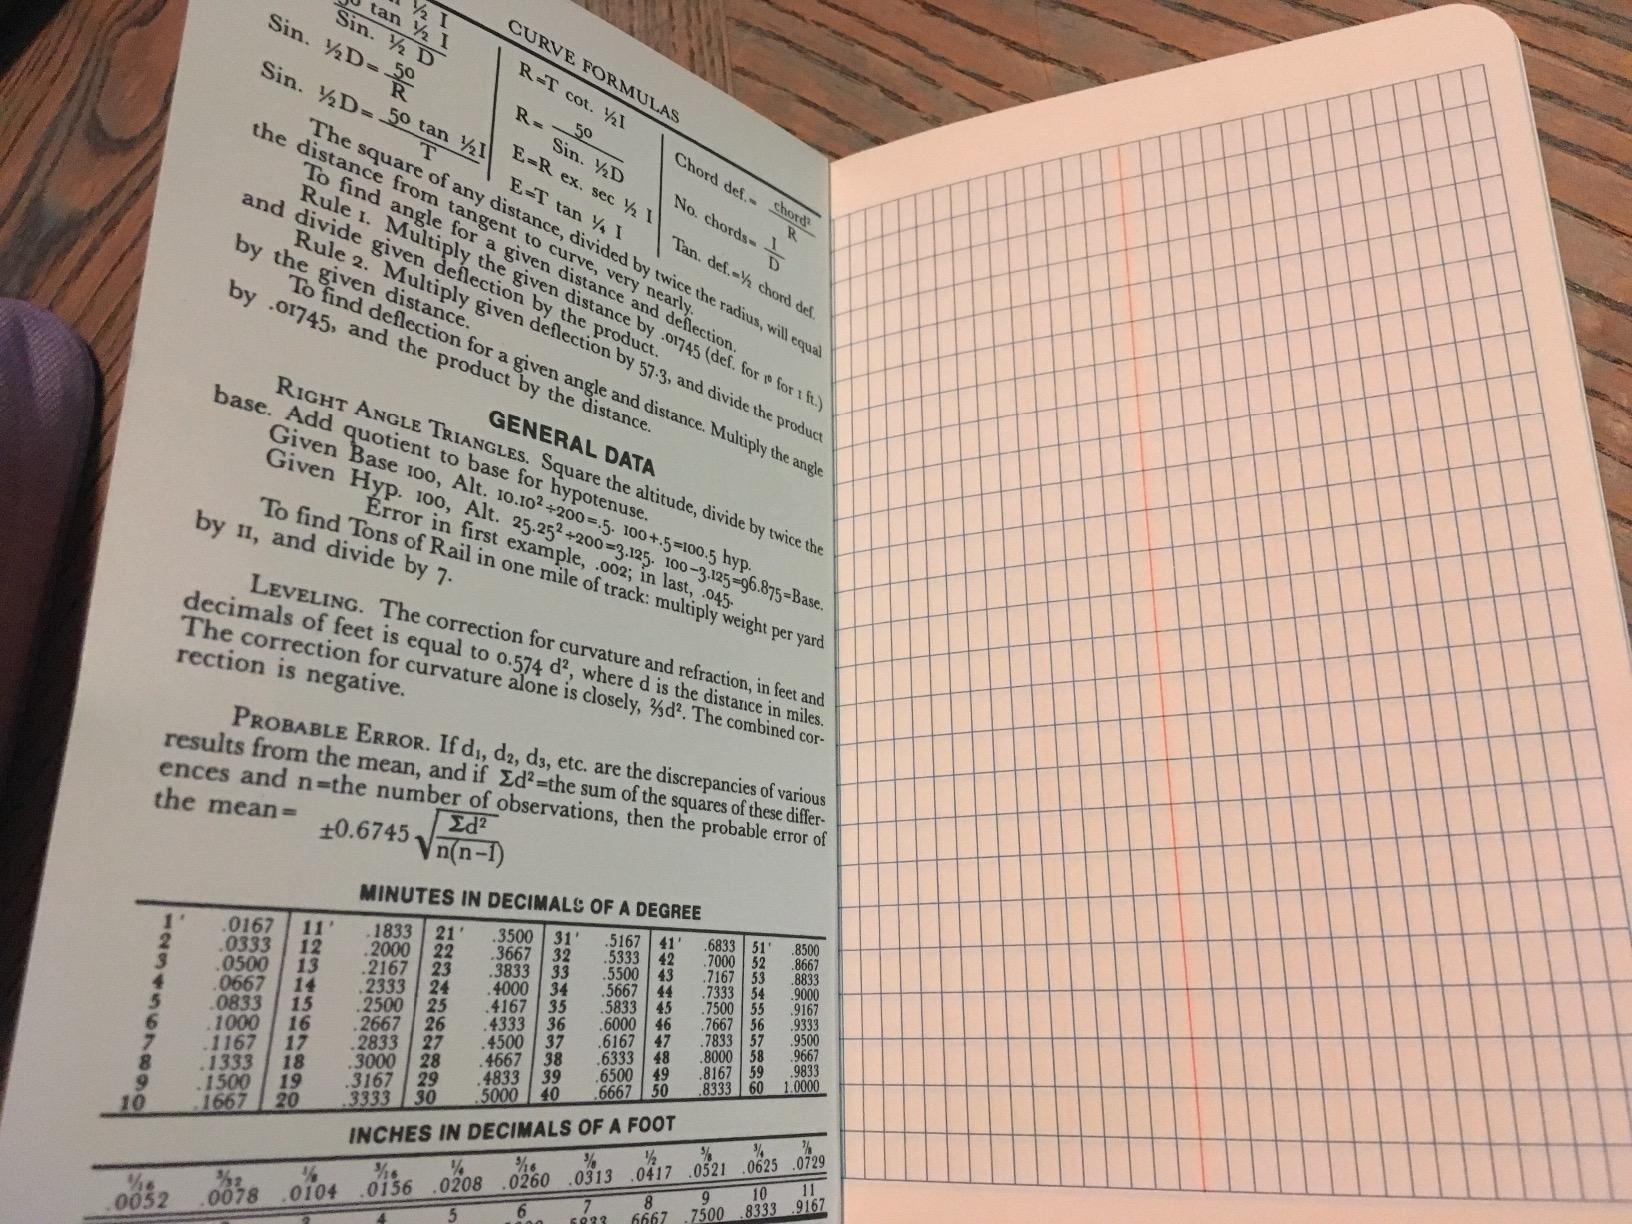 ½ I
tan ½ I
Sin. ½ D
Sin. ½D= 50
R
Sin. ½D= 50 tan ½I
T
CURVE FORMULAS
R=T cot. ½I
R= 50
Sin. ½D
E=R ex. sec ½ I
E=T tan ¼ I
Chord def.= chord²
R
No. chords= I
D
Tan. def.=½ chord def.
The square of any distance, divided by twice the radius, will equal
the distance from tangent to curve, very nearly.
To find angle for a given distance and deflection.
Rule 1. Multiply the given distance by .01745 (def. for 1° for 1 ft.)
and divide given deflection by the product.
Rule 2. Multiply given deflection by 57.3, and divide the product
by the given distance.
To find deflection for a given angle and distance. Multiply the angle
by .01745, and the product by the distance.
GENERAL DATA
RIGHT ANGLE TRIANGLES. Square the altitude, divide by twice the
base. Add quotient to base for hypotenuse.
Given Base 100, Alt. 10.10²÷200=.5. 100+.5=100.5 hyp.
Given Hyp. 100, Alt. 25.25²÷200=3.125. 100−3.125=96.875=Base.
Error in first example, .002; in last, .045.
To find Tons of Rail in one mile of track: multiply weight per yard
by 11, and divide by 7.
LEVELING. The correction for curvature and refraction, in feet and
decimals of feet is equal to 0.574 d², where d is the distance in miles.
The correction for curvature alone is closely, ⅔d². The combined cor-
rection is negative.
PROBABLE ERROR. If d₁, d₂, d₃, etc. are the discrepancies of various
results from the mean, and if Σd²=the sum of the squares of these differ-
ences and n=the number of observations, then the probable error of
the mean=
±0.6745 √ Σd²
n(n−1)
MINUTES IN DECIMALS OF A DEGREE
1' .0167 11' .1833 21' .3500 31' .5167 41' .6833 51' .8500
2 .0333 12 .2000 22 .3667 32 .5333 42 .7000 52 .8667
3 .0500 13 .2167 23 .3833 33 .5500 43 .7167 53 .8833
4 .0667 14 .2333 24 .4000 34 .5667 44 .7333 54 .9000
5 .0833 15 .2500 25 .4167 35 .5833 45 .7500 55 .9167
6 .1000 16 .2667 26 .4333 36 .6000 46 .7667 56 .9333
7 .1167 17 .2833 27 .4500 37 .6167 47 .7833 57 .9500
8 .1333 18 .3000 28 .4667 38 .6333 48 .8000 58 .9667
9 .1500 19 .3167 29 .4833 39 .6500 49 .8167 59 .9833
10 .1667 20 .3333 30 .5000 40 .6667 50 .8333 60 1.0000
INCHES IN DECIMALS OF A FOOT
1/16 3/32 ⅛ 3/16 ¼ 5/16 ⅜ ½ ⅝ ¾ ⅞
.0052 .0078 .0104 .0156 .0208 .0260 .0313 .0417 .0521 .0625 .0729
3 4 5 6 7 8 9 10 11
6667 .7500 .8333 .9167